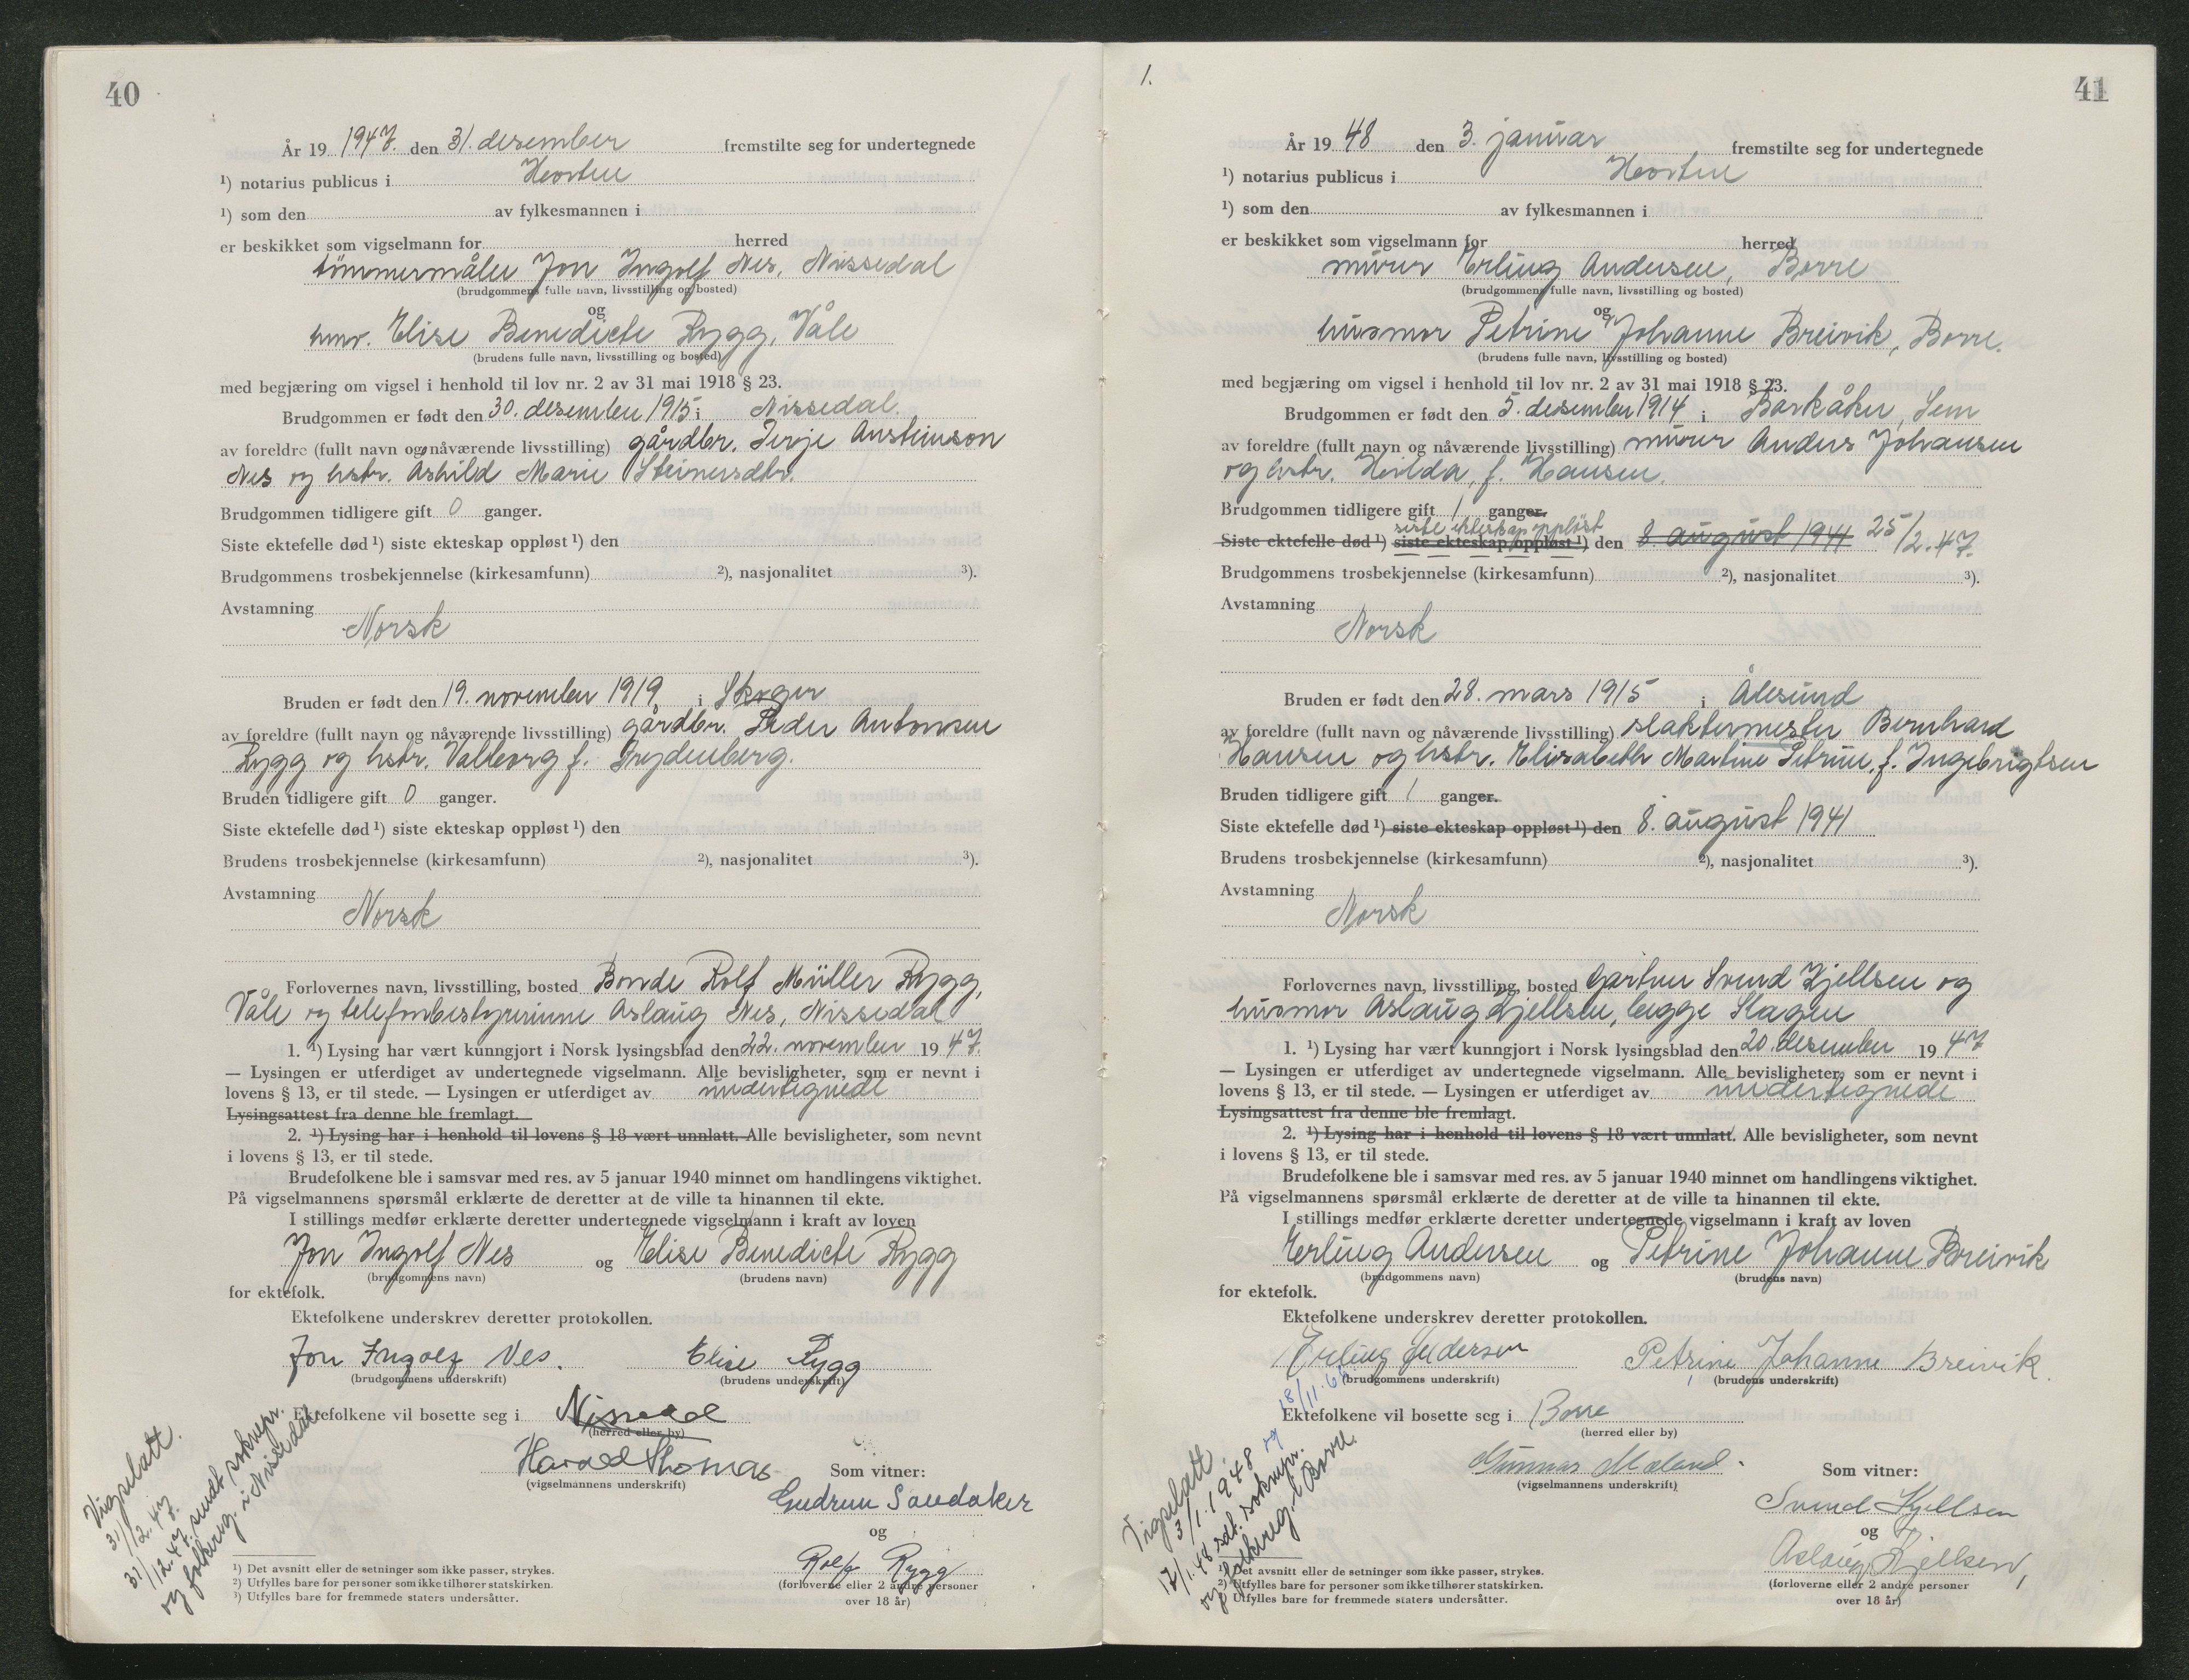 40
År 19 1947. den 31. desember fremstilte seg for undertegnede
¹) notarius publicus i Horten
¹) som den av fylkesmannen i
er beskikket som vigselmann for herred
tømmermåler Jon Ingolf Nes, Nissedal
(brudgommens fulle navn, livsstilling og bosted)
og
hmv. Elise Benedicte Rygg, Våle
(brudens fulle navn, livsstilling og bosted)
med begjæring om vigsel i henhold til lov nr. 2 av 31 mai 1918 § 23.
Brudgommen er født den 30. desember 1915 i Nissedal.
av foreldre (fullt navn og nåværende livsstilling) gårdbr. Terje Austeinson
Nes og hstr. Åshild Marie Steinersdtr.
Brudgommen tidligere gift 0 ganger.
Siste ektefelle død ¹) siste ekteskap oppløst ¹) den
Brudgommens trosbekjennelse (kirkesamfunn) ²), nasjonalitet ³).
Avstamning
Norsk
Bruden er født den 19. november 1919. i Skoger
av foreldre (fullt navn og nåværende livsstilling) gårdbr. Peder Antonsen
Rygg og hstr. Valborg f. Frydenberg.
Bruden tidligere gift 0 ganger.
Siste ektefelle død ¹) siste ekteskap oppløst ¹) den
Brudens trosbekjennelse (kirkesamfunn) ²), nasjonalitet ³).
Avstamning
Norsk
Forlovernes navn, livsstilling, bosted Bonde Rolf Müller Rygg,
Våle og telefonbestyrerinne Aslaug Nes, Nissedal
1. ¹) Lysing har vært kunngjort i Norsk lysingsblad den 22. november 19 47.
— Lysingen er utferdiget av undertegnede vigselmann. Alle bevisligheter, som er nevnt i
lovens § 13, er til stede. — Lysingen er utferdiget av undertegnede
Lysingsattest fra denne ble fremlagt.
2. ¹) Lysing har i henhold til lovens § 18 vært unnlatt. Alle bevisligheter, som nevnt
i lovens § 13, er til stede.
Brudefolkene ble i samsvar med res. av 5 januar 1940 minnet om handlingens viktighet.
På vigselmannens spørsmål erklærte de deretter at de ville ta hinannen til ekte.
I stillings medfør erklærte deretter undertegnede vigselmann i kraft av loven
Jon Ingolf Nes og Elise Benedicte Rygg
(brudgommens navn) (brudens navn)
for ektefolk.
Ektefolkene underskrev deretter protokollen.
Jon Ingolf Nes. Elise Rygg
(brudgommens underskrift) (brudens underskrift)
Ektefolkene vil bosette seg i Nissedal
(herred eller by)
Harald Thomas
(vigselmannens underskrift)
Som vitner:
Gudrun Sandaker
og
Rolf Rygg
(forloverne eller 2 andre personer
over 18 år)
Vigselatt.
31/12.47.
31/12.47. sendt soknepr.
og folkereg. i Nissedal.
¹) Det avsnitt eller de setninger som ikke passer, strykes.
²) Utfylles bare for personer som ikke tilhører statskirken.
³) Utfylles bare for fremmede staters undersåtter.
1.
41
År 19 48 den 3. januar fremstilte seg for undertegnede
¹) notarius publicus i Horten
¹) som den av fylkesmannen i
er beskikket som vigselmann for herred
murer Erling Andersen, Borre
(brudgommens fulle navn, livsstilling og bosted)
og
husmor Petrine Johanne Breivik, Borre.
(brudens fulle navn, livsstilling og bosted)
med begjæring om vigsel i henhold til lov nr. 2 av 31 mai 1918 § 23.
Brudgommen er født den 5. desember 1914 i Barkåker, Sem
av foreldre (fullt navn og nåværende livsstilling) murer Anders Johansen
og hstr. Hilda, f. Hansen.
Brudgommen tidligere gift 1 ganger.
siste ekteskap oppløst
Siste ektefelle død ¹) siste ekteskap oppløst ¹) den 8. august 1941 25/2.47.
Brudgommens trosbekjennelse (kirkesamfunn) ²), nasjonalitet ³).
Avstamning
Norsk
Bruden er født den 28. mars 1915 i Ålesund
av foreldre (fullt navn og nåværende livsstilling) slaktermester Bernhard
Hansen og hstr. Elisabeth Martine Petrine, f. Ingebrigtsen
Bruden tidligere gift 1 ganger.
Siste ektefelle død ¹) siste ekteskap oppløst ¹) den 8. august 1941
Brudens trosbekjennelse (kirkesamfunn) ²), nasjonalitet ³).
Avstamning
Norsk
Forlovernes navn, livsstilling, bosted Gartner Svend Kjellsen og
husmor Aslaug Kjellsen, begge Slagen
1. ¹) Lysing har vært kunngjort i Norsk lysingsblad den 20. desember 19 47
— Lysingen er utferdiget av undertegnede vigselmann. Alle bevisligheter, som er nevnt i
lovens § 13, er til stede. — Lysingen er utferdiget av undertegnede
Lysingsattest fra denne ble fremlagt.
2. ¹) Lysing har i henhold til lovens § 18 vært unnlatt. Alle bevisligheter, som nevnt
i lovens § 13, er til stede.
Brudefolkene ble i samsvar med res. av 5 januar 1940 minnet om handlingens viktighet.
På vigselmannens spørsmål erklærte de deretter at de ville ta hinannen til ekte.
I stillings medfør erklærte deretter undertegnede vigselmann i kraft av loven
Erling Andersen og Petrine Johanne Breivik
(brudgommens navn) (brudens navn)
for ektefolk.
Ektefolkene underskrev deretter protokollen.
Erling Andersen Petrine Johanne Breivik.
(brudgommens underskrift) (brudens underskrift)
Ektefolkene vil bosette seg i Borre
(herred eller by)
Gunnar Moland.
(vigselmannens underskrift)
Som vitner:
Svend Kjellsen
og
Aslaug Kjellsen,
(forloverne eller 2 andre personer
over 18 år)
Vigselatt.
3/1.1948 og
17/1.48 sdt. soknepr.
og folkereg. i Borre.
¹) Det avsnitt eller de setninger som ikke passer, strykes.
²) Utfylles bare for personer som ikke tilhører statskirken.
³) Utfylles bare for fremmede staters undersåtter.